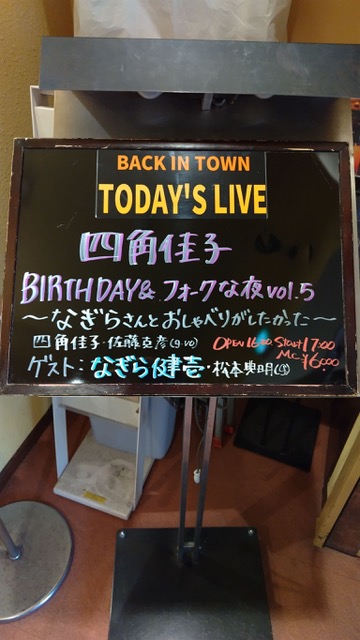 BACK IN TOWN
TODAY'S LIVE
四角佳子
BIRTHDAY& フォークな夜 vol.5
～なぎらさんとおしゃべりがしたかった～
四角佳子・佐藤克彦(g.vo) OPEN 16:00 Start 17:00
M.C ¥6000
ゲスト：なぎら健壱・松本典明